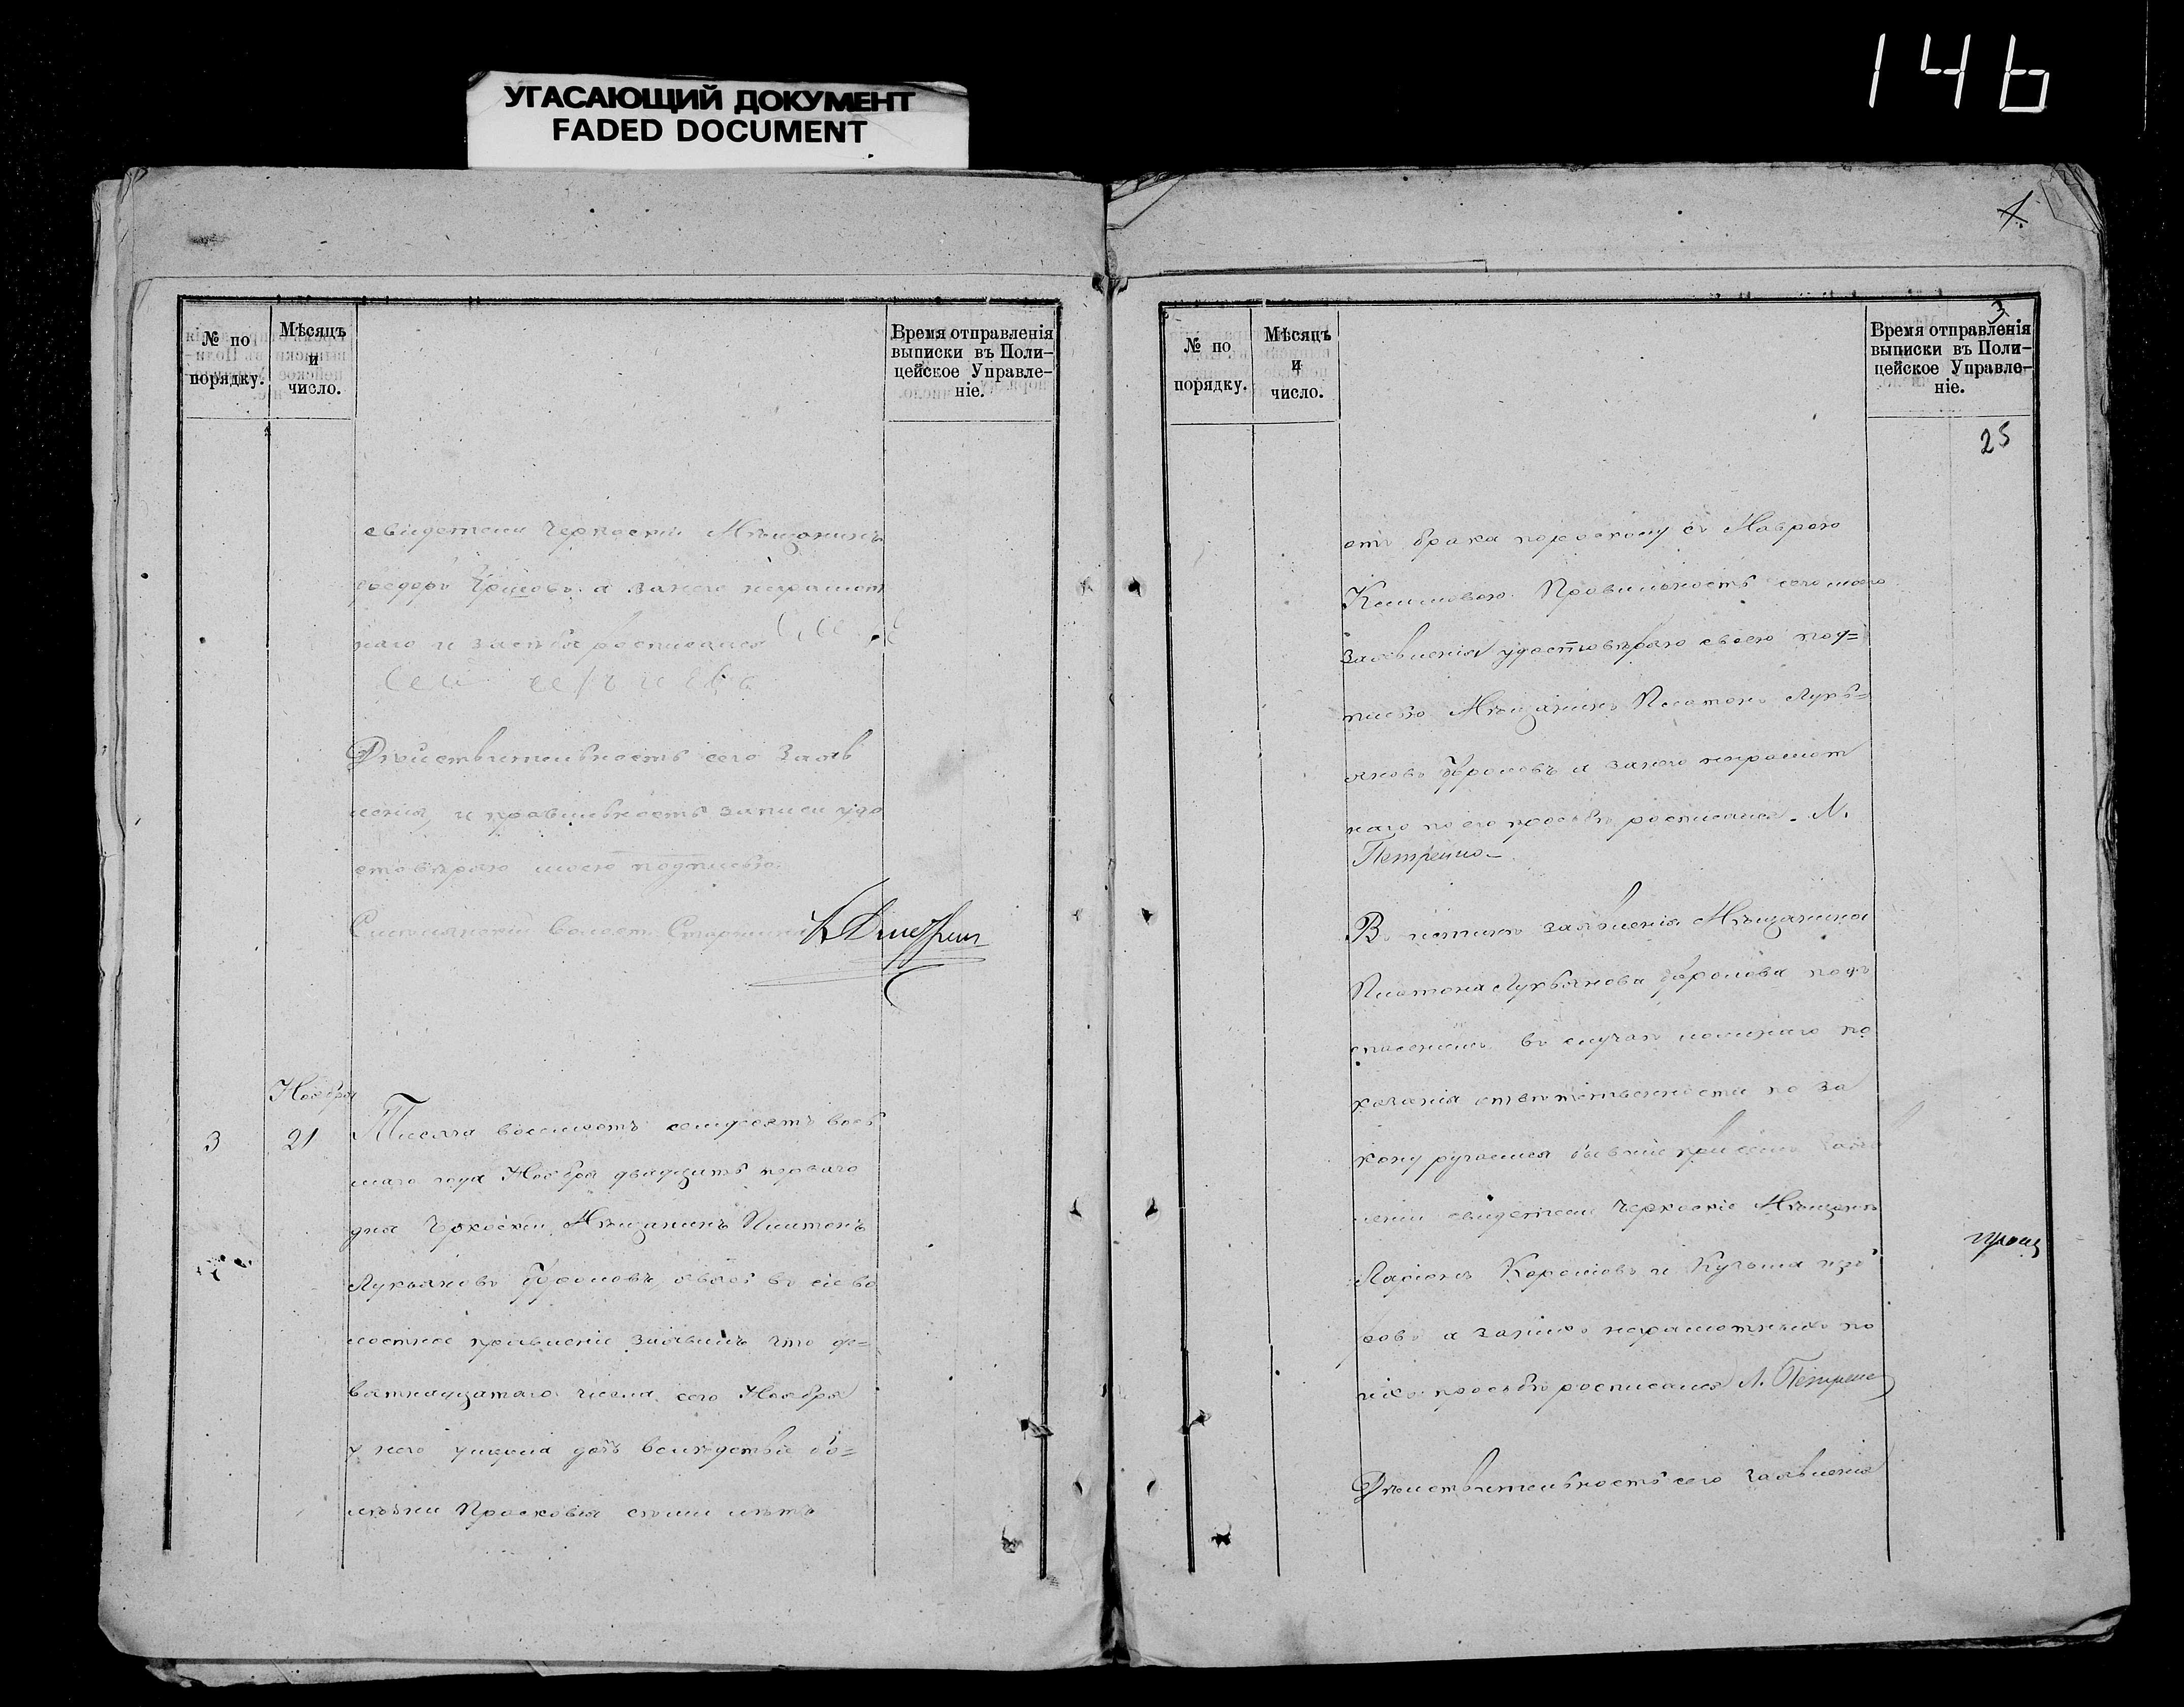 УГАСАЮЩИЙ ДОКУМЕНТ
FADED DOCUMENT
146
№ по порядку.
Мѣсяцъ и число.
Время отправленія
выписки въ Поли-
цейское Управле-
ніе.
свидетели Черкоскій Мѣщанинъ
Фролов а занего неграмот
наго и засебя росписался
Дѣйствительность сего Заяв
ления и правильность записи удо
стовѣряю моею подписью.
волост. Старшина
Ноября
3
21
Тисяча восемсотъ семдесятъ вось
маго года Ноября двадцать перваго
дня Мѣщанинъ Платонъ
Лукьяновъ Фроловъ, въ сіе во
лостное правление заявилъ что де=
вятнадцатаго числа сего Ноября
у него умерла дочь вследствіе бо=
лѣзни Просковья семи летъ
3
№ по порядку.
Мѣсяцъ и число.
Время отправленія
выписки въ Поли-
цейское Управле-
ніе.
25
отъ брака съ Маврою
Климовою. Правильность сего моего
заявления удостовѣряю своею под=
писью Мѣщанинъ Платонъ Лукь=
яновъ Фроловъ а занего неграмот
наго по его просьбѣ росписался. Л.
Петренко
В заявления Мѣщанина
Платона Лукьянова Фролова подъ
опасениемъ въ случаѣ ложнаго по
казания ответственности по за
кону ручаемся бывшие при семъ
свидетели Черкоскіе Мѣщане
Ларіонъ и Кузьма
а занихъ неграмотныхъ по
ихъ просьбѣ росписался Л. Петренко
Дѣйствительность сего заявления